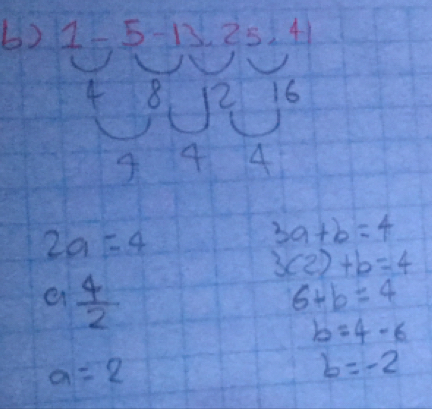 b) 1 - 5 - 13. 25. 41
4 8 12 16
4 4 4
2a = 4
a 4/2
a = 2
3a + b = 4
3(2) + b = 4
6 + b = 4
b = 4 - 6
b = -2